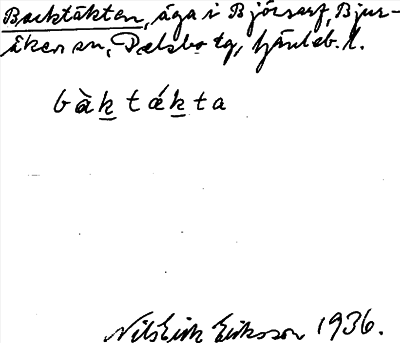 Backtäkten, äga i Bjåsarf, Bjur-
åker sn, Delsbo tg, Gävleb. l.
bàktákta
Nils Erik Eriksson 1936.